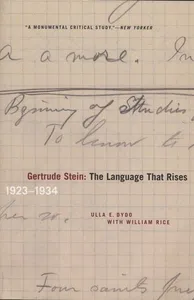 "A MONUMENTAL CRITICAL STUDY."—NEW YORKER
a a more. In
Beginning of Studies
To know to
Gertrude Stein: The Language That Rises
1923–1934
ULLA E. DYDO
WITH WILLIAM RICE
her so.
Four saints